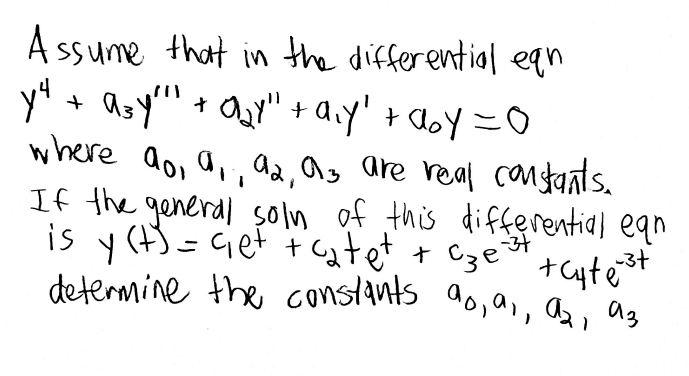 Assume that in the differential eqn
y⁴ + a₃y''' + a₂y'' + a₁y' + a₀y = 0
where a₀, a₁, a₂, a₃ are real constants.
If the general soln of this differential eqn
is y(t) = c₁eᵗ + c₂teᵗ + c₃e⁻³ᵗ + c₄te⁻³ᵗ
determine the constants a₀, a₁, a₂, a₃